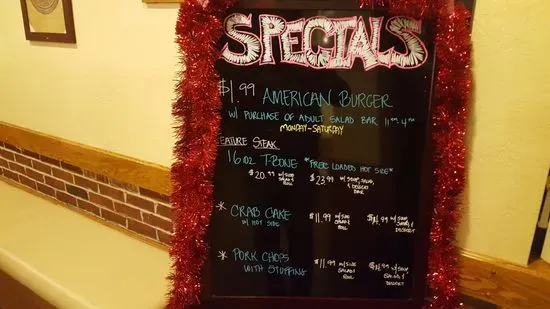 SPECIALS
$1.99 AMERICAN BURGER
W/ PURCHASE OF ADULT SALAD BAR 11AM-4PM
MONDAY-SATURDAY
FEATURE STEAK
16 OZ T-BONE *FREE LOADED HOT SIDE*
$20.99 W/SIDE SALAD & ROLL $23.99 W/ SOUP, SALAD & DESSERT BAR
* CRAB CAKE $11.99 W/SIDE SALAD & ROLL W/ SOUP, SALAD & DESSERT
W/ HOT SIDE
* PORK CHOPS $11.99 W/SIDE SALAD ROLL W/ SOUP, SALAD & DESSERT
WITH STUFFING